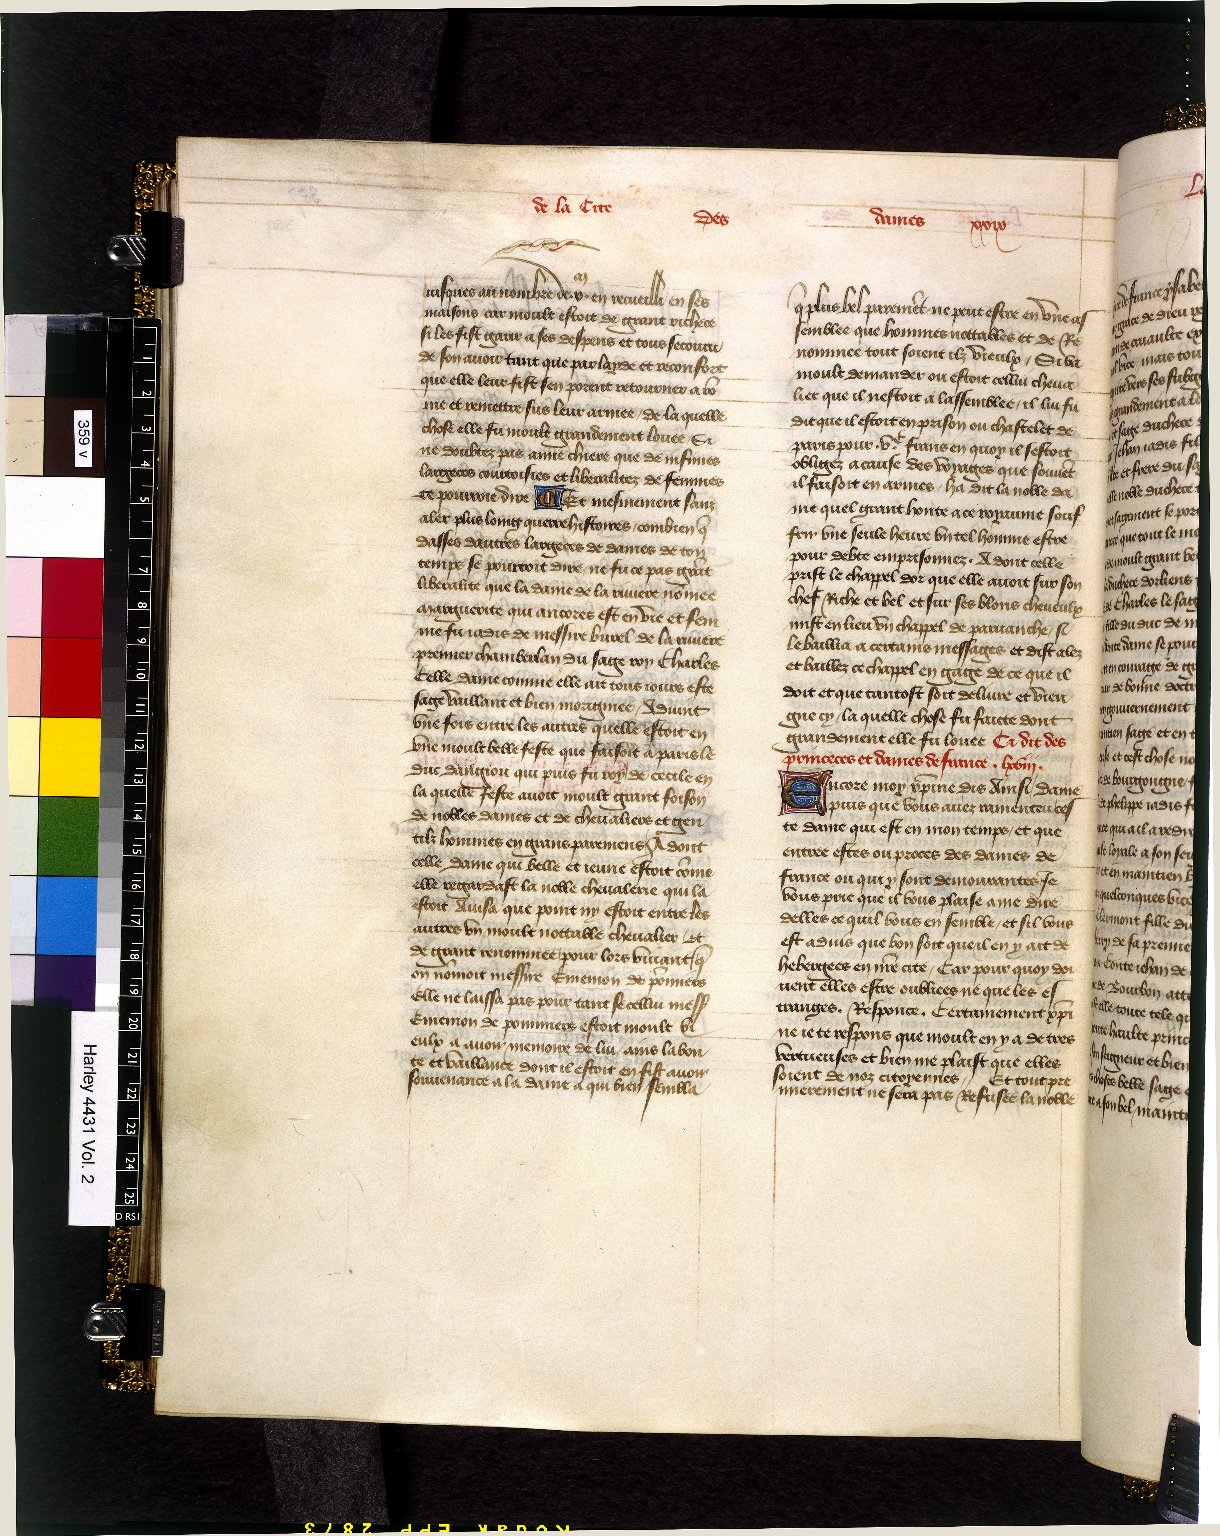 de la Cite
Des
dames
xxix
iusques au nombre de .v. m en recueilli en ses
maisons car moult estoit de grant richece
si les fist garir a ses despens et tous secouru
de son auoir tant que par layde et reconfort
que elle leur fist sen porent retourner a rõ
me et remettre sus leur armee / de la quelle
chose elle fu moult grandement louee Si
ne doubtez pas amie chiere que de infinies
largeces courtoisies et liberalitez de femmes
te pourroie dire Et mesmement sanz
aler plus loing querre histoires / combien q̃
dasses dautres largeces de dames de ton
temps se pourroit dire ne fu ce pas grãt
liberalite que la dame de la riuiere nõmee
marguerite qui ancores est en vie et fem
me fu iadis de messire burel de la riuiere
premier chambrelan du sage roy Charles
Celle dame comme elle ait tous iours este
sage vaillant et bien moriginee / Aduint
vne fois entre les autres quelle estoit en
vne moult belle feste que faisoit a paris le
duc daniou qui puis fu roy de cecile en
la quelle feste auoit moult grant foison
de nobles dames et de cheualiers et gen
tilz hommes en grans paremens / A dont
celle dame qui belle et ieune estoit cõme
elle regardast la noble cheualerie qui la
estoit Auisa que point ny estoit entre les
autres vn moult nottable cheualier / et
de grant renommee pour lors viuant q̃
on nõmoit messire Emenion de põmiers
Elle ne laissa pas pour tant se cellui mess
Emenion de pommiers estoit moult vi
eulx a auoir memoire de lui / ains la bon
te et vaillance dont il estoit en fist auoir
souuenance a la dame a qui bien sembla
q̃ plus bel paremẽt ne peut estre en vne as
semblee que hommes nottables et de Re
nommee tout soient ilz vieulx / Si va
moult demander ou estoit cellui cheua
lier que il nestoit a lassemblee / il lui fu
dit que il estoit en prison ou chastelet de
paris pour .vc. frans en quoy il sestoit
obligez a cause des voyages que souuẽt
il faisoit en armes / ha dit la noble da
me quel grant honte a ce royaume souf
frir vne seule heure vn tel homme estre
pour debte emprisonnez . A dont celle
prist le chappel dor que elle auoit sur son
chef Riche et bel et sur ses blons cheueulx
mist en lieu vn chappel de paruanche / si
le bailla a certains messages et dist alez
et baillez ce chappel en gage de ce que il
doit et que tantost soit deliure et vien
gne cy / la quelle chose fu faicte dont
grandement elle fu louee Ci dit des
princeces et dames de france . lxviij .
Encore moy x̃pine dis Ainsi / dame
puis que vous auez ramenteu ces
te dame qui est en mon temps / et que
entree estes ou proces des dames de
france ou qui y sont demourantes Je
vous prie que il vous plaise a me dire
delles ce quil vous en semble / et sil vous
est aduis que bon soit que il en y ait de
hebergees en nr̃e cite / Car pour quoy doi
uent elles estre oubliees ne que les es
tranges . Responce . Certainement x̃pi
ne ie te respons que moult en y a de tres
vertueuses et bien me plaist que elles
soient de noz citoyennes / Et tout pre
mierement ne sera pas Refusee la noble
359 v
Harley 4431 Vol. 2